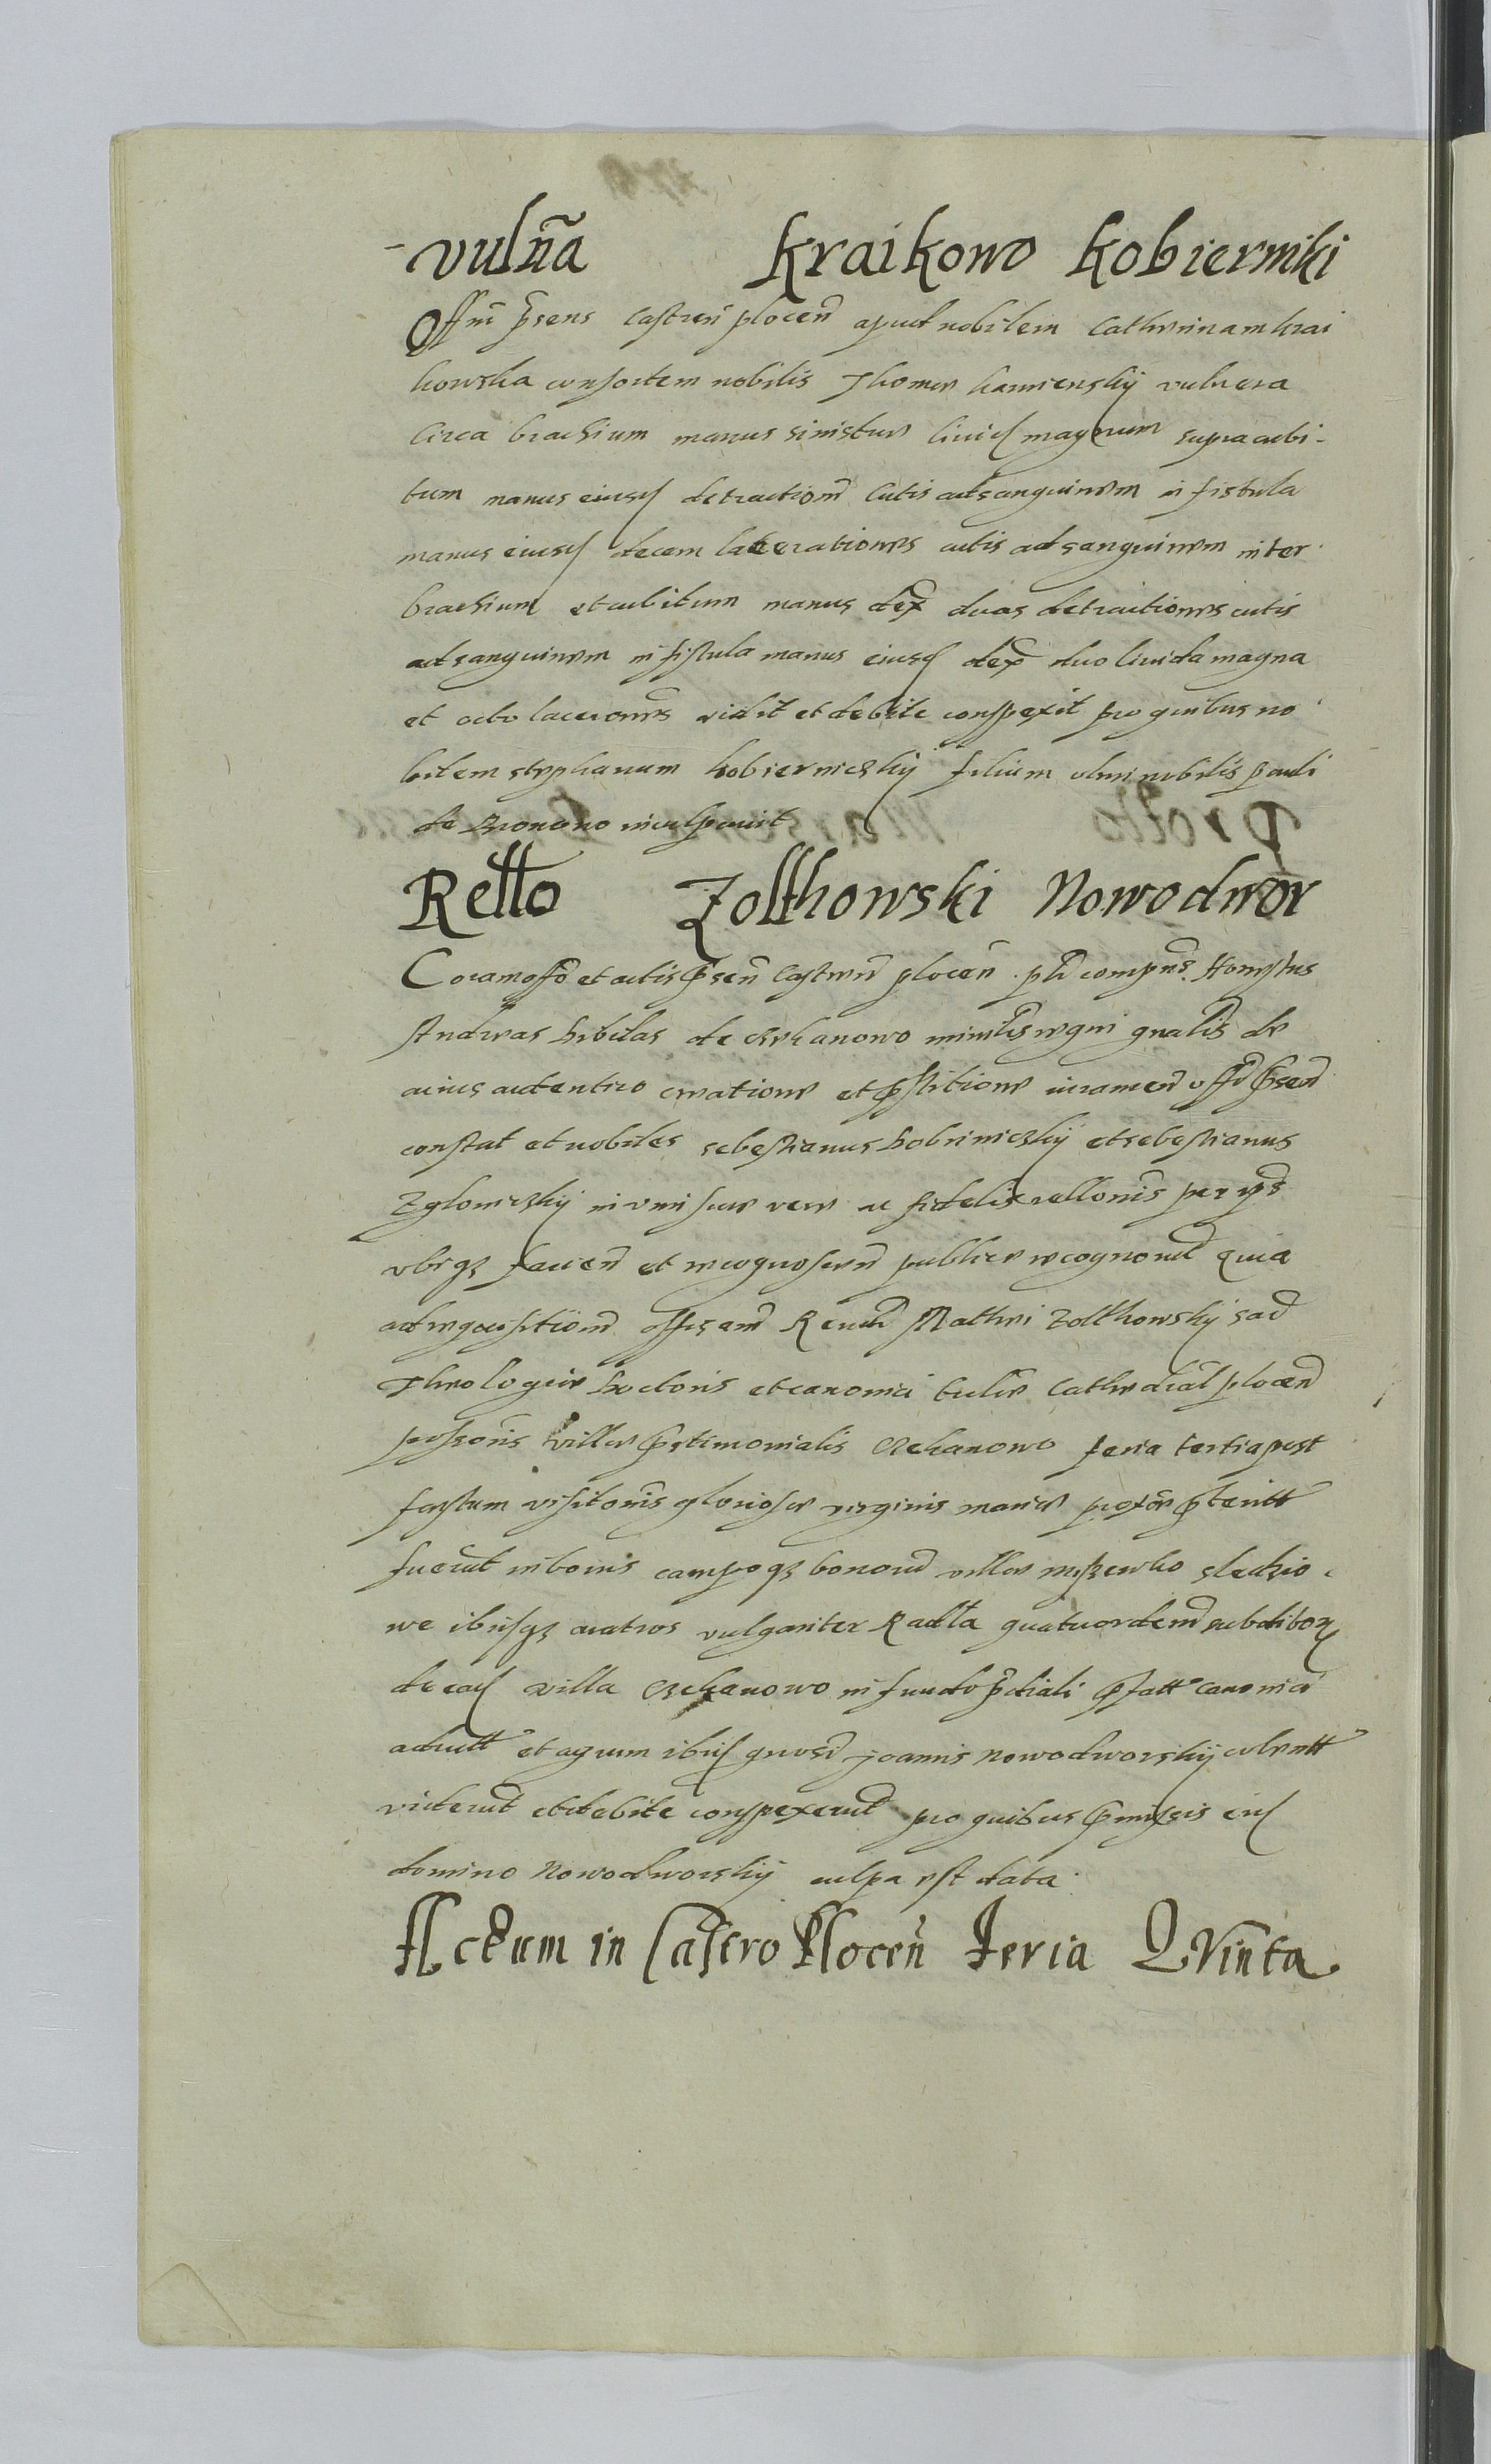 vulña Kraikowo Kobierniki
Offm p̃sens Castren̄ plocen̄ apud nobilem Catherinam krai
kowska consortem nobilis Thomae kamienskij vulnera
Circa brachium manus sinistrae livid magnum supra cubi-
tum manus eiusd detractionem Cutis ad sanguinem in fistula
manus eiusd decem lacerationes cutis ad sanguinem inter
brachium et cubitum manus dex̃ duas detractiones cutis
ad sanguinem in fistula manus eiusd dex̃ duo livida magna
et octo laceron̄es vidit et debite conspexit pro quibus no
bilem stephanum kobierniczkij filium olim nobilis pauli
de inculpavit
Retto Zolthowski Nowodwor
Coram offo et actis p̃sen̄ Castren̄ plocen̄ plr̄ compns̃ Honestus
Andreas de Orkanowo ministr̃lis regni gnalis de
cuius autentico creatione et p̃stitione iuramen̄ offo p̃sen̄
constat et nobiles sebestianus kobiernickij et sebestianus
Zglowiczkij in vim suae verae ac fidelis rellonis per
vbiqz facien̄ et recognoscen̄ publice recognorunt quia
ad requisitionem Reund̄ Mathei Zolthowskij sac̃
Theologiae doctoris et canonici Eccliae Cathedral plocen̄
possoris villae p̃stimonialis Orkanowo feria tertia post
festum visitonis gloriosae virginis mariae proxõe p̃teritt
fuerunt in bonis campoqz bonorũ villae miszewko sledzio
we ibusqz aratros vulgariter Radla quatuordecim subditorz
de ead villa Orkanowo in fundo p̃diali p̃fatti canonici
actu et agrum ibid g̃nosi joannis nowodworskij
viderunt et debite conspexerunt pro quibus p̃missis eid
domino Nowodworskij culpa est data
Actum in Castro Plocen̄ Feria Quinta